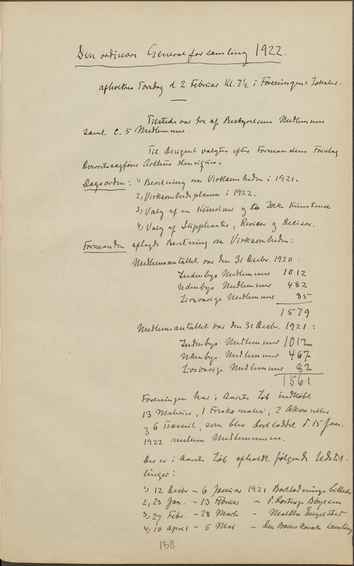 Den ordinære Generalforsamling 1922.
afholdtes Torsdag d. 2 Februar Kl. 7½ i Foreningens Lokaler.
Tilstede var tre af Bestyrelsens Medlemmer
samt c. 5 Medlemmer
Til Dirigent valgtes efter Formandens Forslag
Overretssagfører Arthur Henriques.
Dagsorden: 1) Beretning om Virksomheden i 1921.
2) Virksomhedsplanen i 1922.
3) Valg af en Kunstner og to Ikke Kunstnere
4) Valg af Suppleanter, Revisor og Decisor.
Formanden aflagde Beretning om Virksomheden:
Medlemsantallet var den 31 Decbr. 1920:
Indenbys Medlemmer 1012
Udenbys Medlemmer 482
Livsvarige Medlemmer 85
1579
Medlemsantallet var den 31 Decbr. 1921:
Indenbys Medlemmer 1012
Udenbys Medlemmer 467
Livsvarige Medlemmer 82
1561
Foreningen har i Aarets Løb indkøbt
13 Malerier, 1 Freskomaleri, 2 Akvareller
og 6, som blev bortloddet d. 15 Jan.
1922 mellem Medlemmerne.
Der er i Aarets Løb afholdt følgende Udstil-
linger:
1, 12 Decbr – 6 Januar 1921 Bortlodnings billed
2, 23 Jan. – 13 Februar – P. Rostrup Bøyesen
3, 27 Febr. – 28 Marts – Malthe Engelsted
4, 10 April – 5 Maj – Den Samling
138